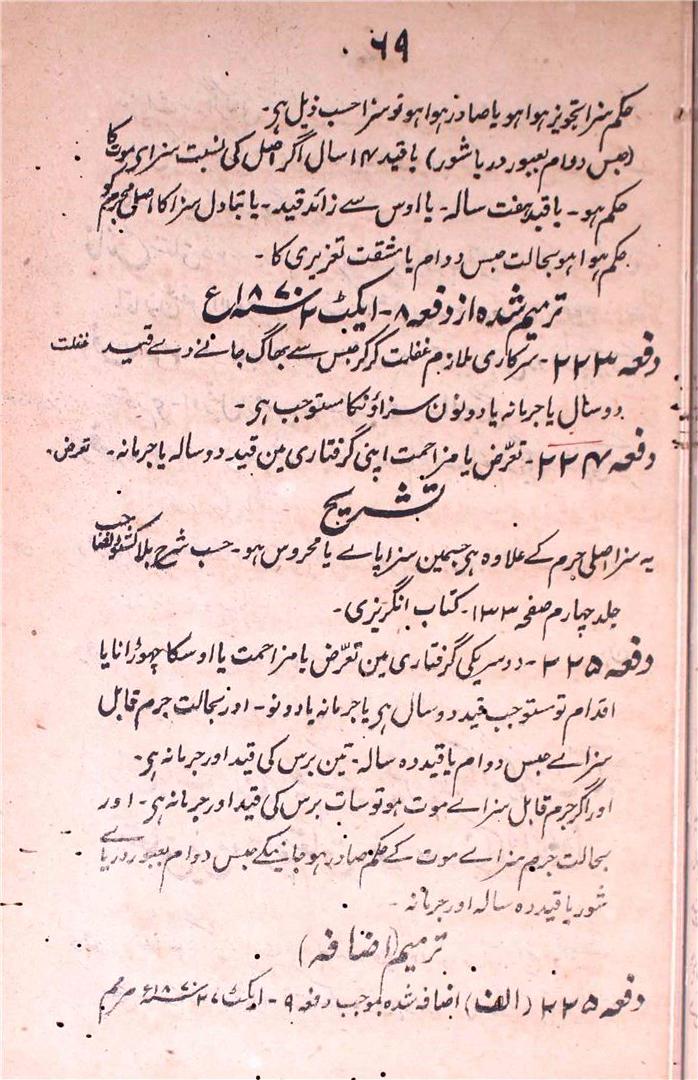 ۶۹
حکم سزا تجویز ہوا ہو یا صادر ہوا ہو تو سزا حسب ذیل ہی۔
(حبس دوام بعبور دریا شور) یا قید ۱۴ سال اگر اصل کی نسبت سزاے موت کا
حکم ہو۔ یا قید ہفت سالہ۔ یا اوس سے زائد قید۔ یا تبادل سزا کا اصلی مجرم کو
حکم ہوا ہو بحالت حبس دوام یا مشقت تعزیری کا۔
ترمیم شدہ از دفعہ ۸۔ ایکٹ ۲۷ سنہ ۱۸۷۰ع
دفعہ ۲۲۳۔ سرکاری ملازم غفلت کر کر حبس سے بھاگ جانے دے قید غفلت
دو سال یا جرمانہ یا دونون سزاؤنکا مستوجب ہی۔
دفعہ ۲۲۴۔ تعرّض یا مزاحمت اپنی گرفتاری مین قید دو سالہ یا جرمانہ۔ تعرض۔
تشریح
یہ سزا اصلی جرم کے علاوہ ہی جسمین سزا پاے یا محروس ہو۔ حسب شرح بلاکسٹون صاحب
جلد چہارم صفحہ ۱۳۳۔ کتاب انگریزی۔
دفعہ ۲۲۵۔ دوسریکی گرفتاری مین تعرّض یا مزاحمت یا اوسکا چھوڑانا یا
اقدام تو مستوجب قید دو سال ہی یا جرمانہ یا دونو۔ اور بحالت جرم قابل
سزاے حبس دوام یا قید دہ سالہ۔ تین برس کی قید اور جرمانہ ہی۔
اور اگر جرم قابل سزاے موت ہو تو سات برس کی قید اور جرمانہ ہی۔ اور
بحالت جرم سزاے موت کے حکم صادر ہو جانیکے حبس دوام بعبور دریاے
شور یا قید دہ سالہ اور جرمانہ۔
ترمیم (اضافہ)
دفعہ ۲۲۵ (الف) اضافہ شدہ بموجب دفعہ ۹۔ ایکٹ ۲۷ سنہ ۱۸۷۰ع